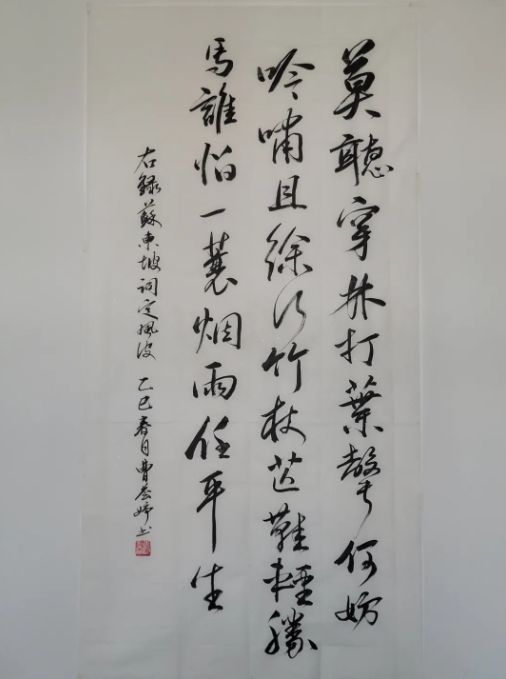 莫聽穿林打葉聲何妨
吟嘯且徐行竹杖芒鞋輕勝
馬誰怕一蓑烟雨任平生
右録蘇東坡詞定風波 乙巳春月曹婷书